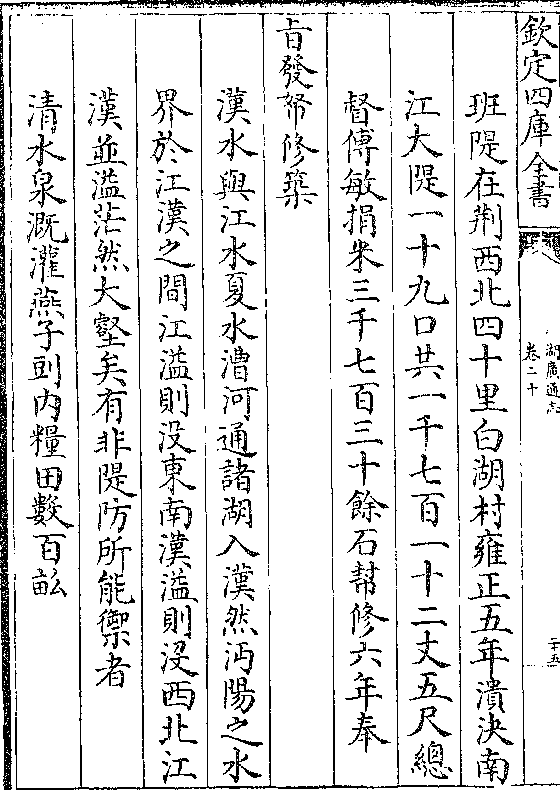 欽定四庫全書
湖廣通志
卷二十
二十五
班隄在荆西北四十里白湖村雍正五年潰決南
江大隄一十九口共一千七百一十二丈五尺總
督傅敏捐米三千七百三十餘石幇修六年奉
旨發帑修築
漢水與江水夏水漕河通諸湖入漢然沔陽之水
界於江漢之間江溢則没東南漢溢則没西北江
漢並溢茫然大壑矣有非隄防所能禦者
清水泉溉灌燕子㓸内糧田數百畆